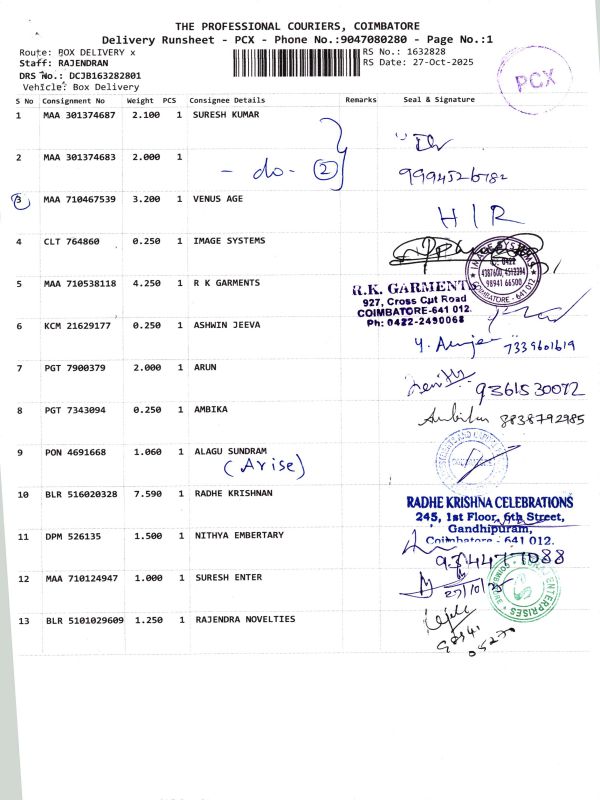 THE PROFESSIONAL COURIERS, COIMBATORE
Delivery Runsheet - PCX - Phone No.:9047080280 - Page No.:1
Route: BOX DELIVERY x
RS No.: 1632828
Staff: RAJENDRAN
RS Date: 27-Oct-2025
DRS No.: DCJB163282801
Vehicle: Box Delivery
PCX
S No Consignment No Weight PCS Consignee Details Remarks Seal & Signature
1 MAA 301374687 2.100 1 SURESH KUMAR
2 MAA 301374683 2.000 1
- do - (2)
9994526782
3 MAA 710467539 3.200 1 VENUS AGE
H/R
4 CLT 764860 0.250 1 IMAGE SYSTEMS
IMAGE SYSTEMS
0422
4387600, 4512394
98941 66500
COIMBATORE - 641 012
5 MAA 710538118 4.250 1 R K GARMENTS
R.K. GARMENTS
927, Cross Cut Road
COIMBATORE-641 012.
Ph: 0422-2490068
6 KCM 21629177 0.250 1 ASHWIN JEEVA
7339601619
7 PGT 7900379 2.000 1 ARUN
9361530072
8 PGT 7343094 0.250 1 AMBIKA
Ambika 8838792985
9 PON 4691668 1.060 1 ALAGU SUNDRAM
(Arise)
10 BLR 516020328 7.590 1 RADHE KRISHNAN
RADHE KRISHNA CELEBRATIONS
245, 1st Floor, 6th Street,
Gandhipuram,
Coimbatore - 641 012.
11 DPM 526135 1.500 1 NITHYA EMBERTARY
9344771088
12 MAA 710124947 1.000 1 SURESH ENTER
27/10/25
ENTERPRISES
13 BLR 5101029609 1.250 1 RAJENDRA NOVELTIES
98941
05270